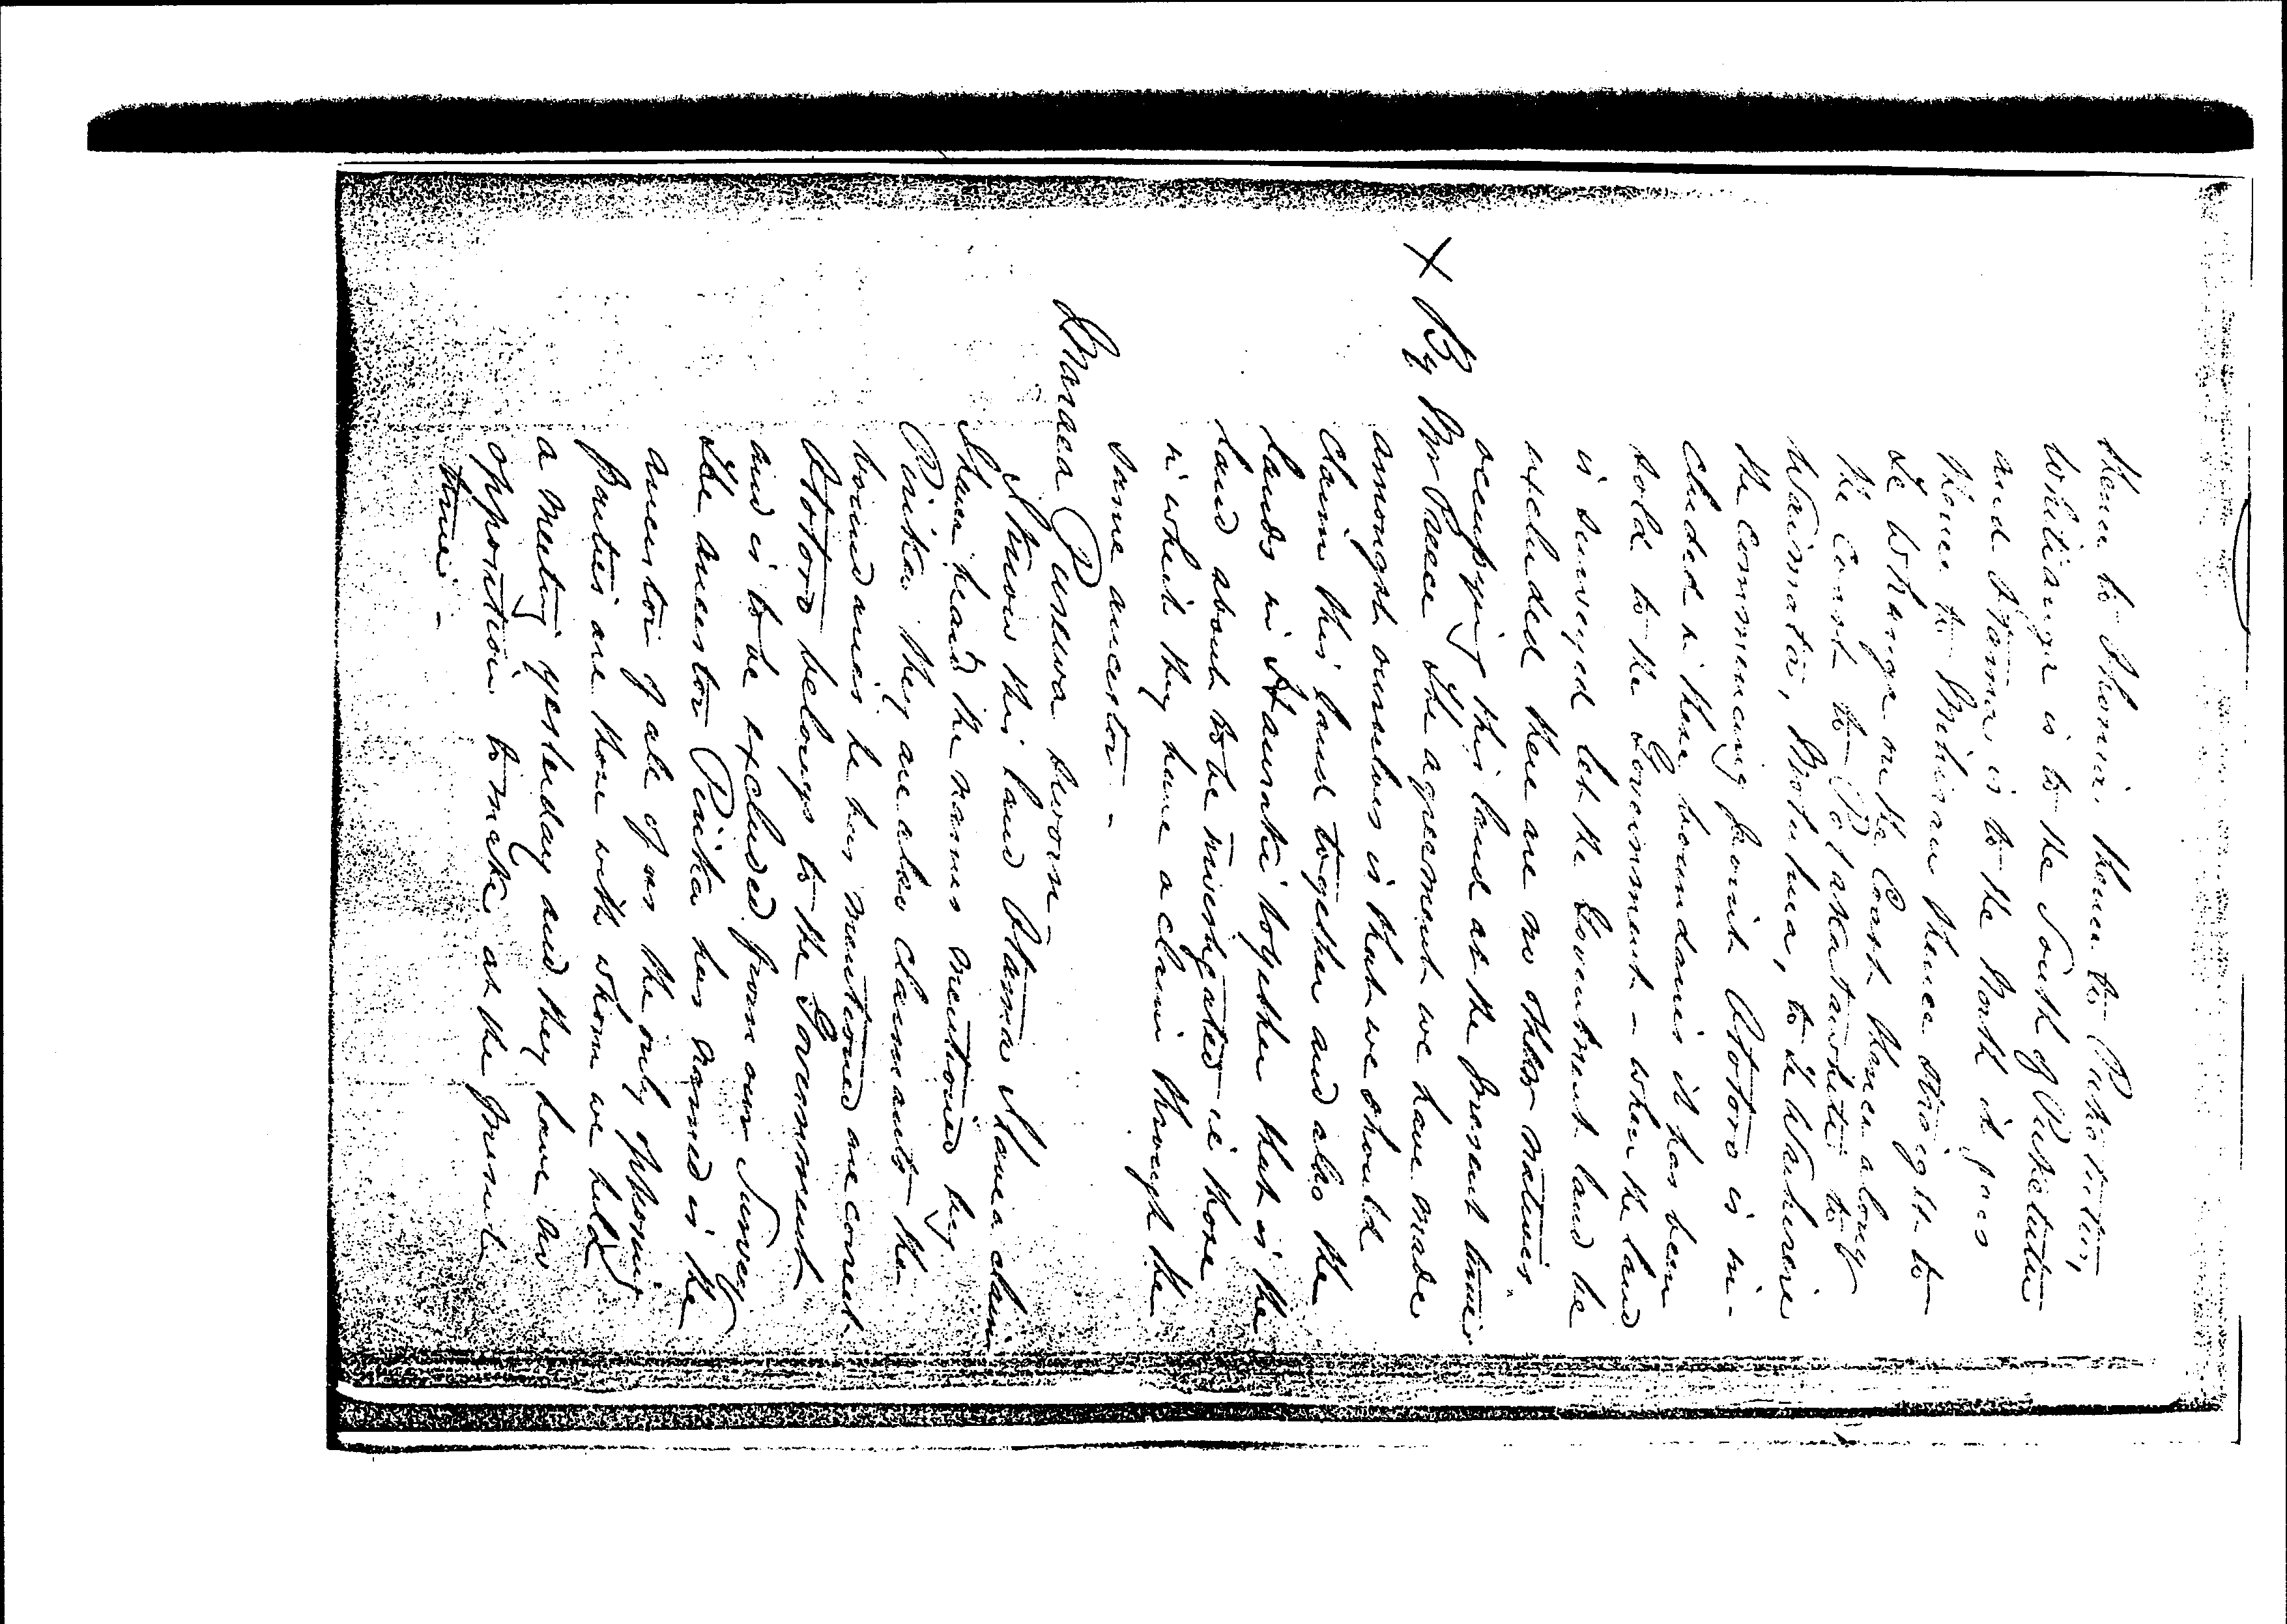 thence to Ohonia, thence to Puketutu,
Whitianga is to the South of Puketutu
and Otama is to the North it goes
thence to Mihirau thence straight to
Te Whanga on the Coast thence along
the Coast to to
Waimata, Motuhua, to Te Wauhine
the Commencing point Otótoro is in-
cluded in these boundaries it has been
sold to the Government – when the land
is surveyed let the Government land be
excluded there are no other natives
occupying this land at the present time
X By Mr Pacce the agreement we have made
amongst ourselves is that we should
claim this land together and also the
lands in Hauraki together that is the
land about to be investigated ie those
in which they have a claim through the
same ancestor –
Maraea sworn
I know this land Otama I have a claim
I have heard the names mentioned by
they are also claimants the
boundaries he has mentioned are correct.
Otótoro belongs to the Government
and is to be excluded from our Survey
The ancestor has named is the
ancestor of all of us the only opposing
parties are those with whom we held
a meeting yesterday and they have no
opposition to make at the present
time –